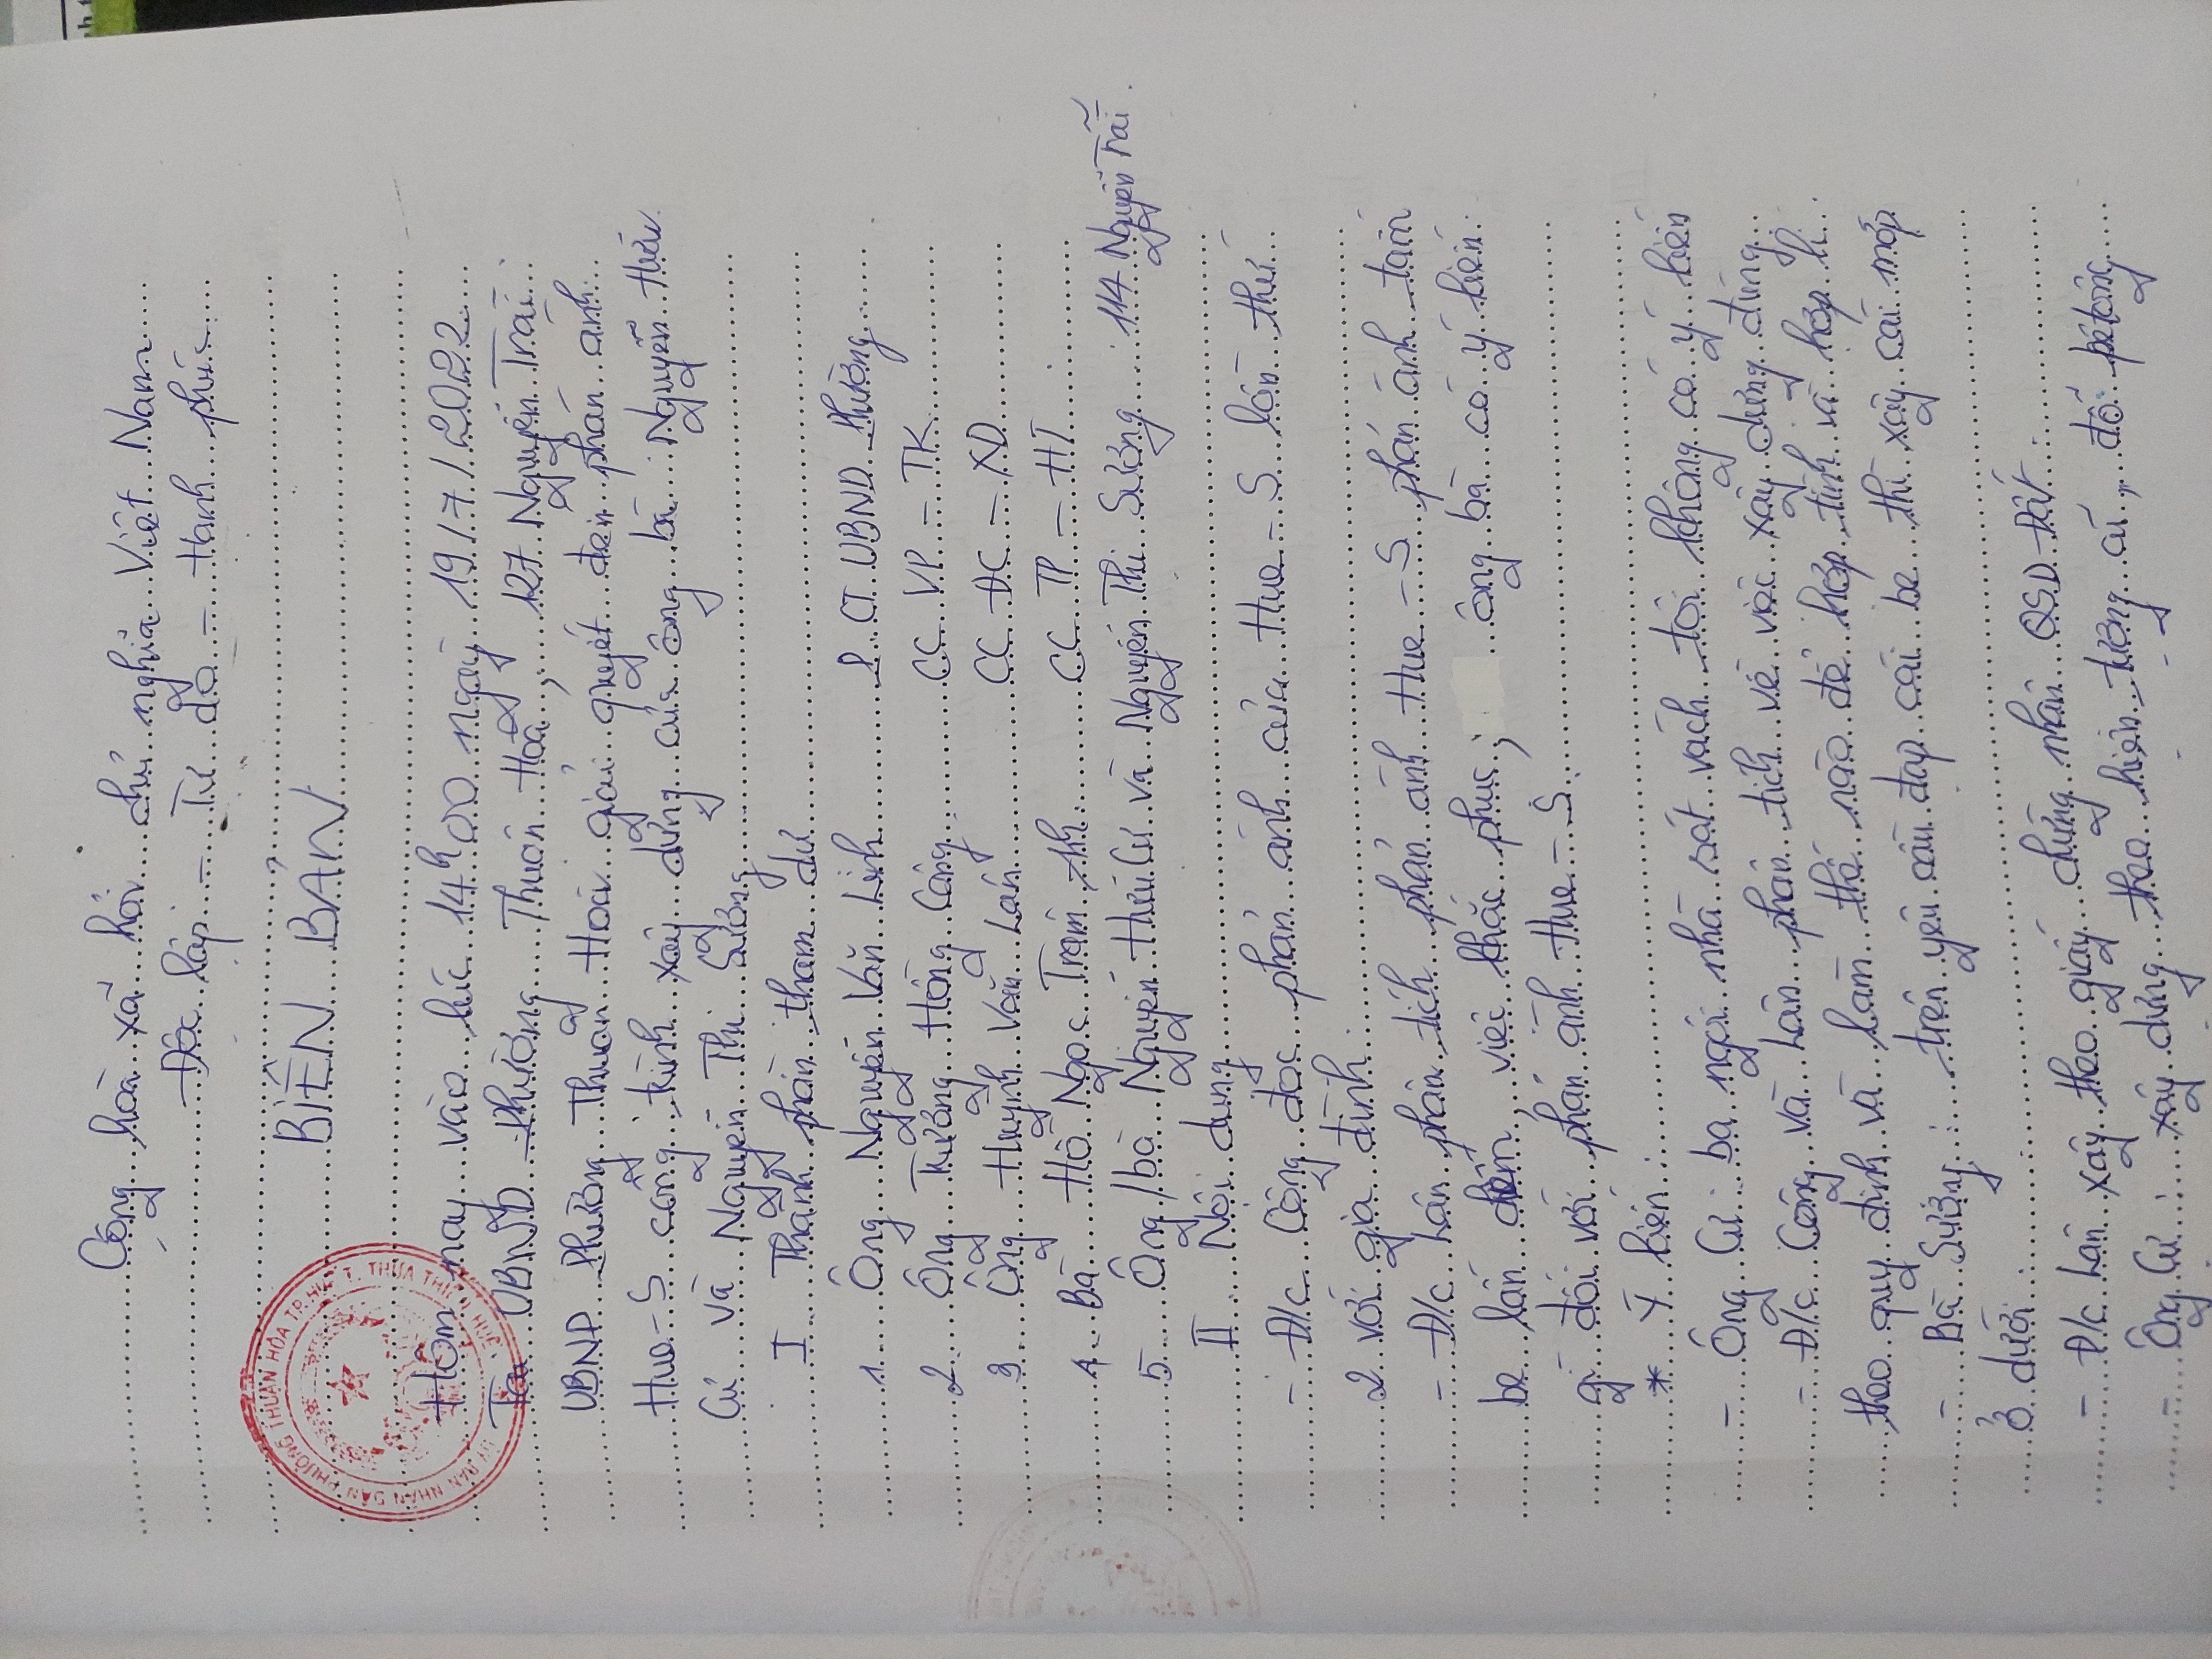 Cộng hoà xã hội chủ nghĩa Việt Nam
Độc lập - Tự do - Hạnh phúc
BIÊN BẢN
Hôm nay vào lúc 14h00 ngày 19/7/2022
Tại UBND phường Thuận Hoà, 127 Nguyễn Trãi
UBNP phường Thuận Hoà giải quyết đơn phản ánh
Hue-S công trình xây dựng của ông bà Nguyễn Hữu
Cư và Nguyễn Thị Sương
I Thành phần tham dự
1 Ông Nguyễn Văn Linh P.CT UBND Phường
2 Ông Trương Hồng Công CC VP - TK
3 Ông Huỳnh Văn Lân CC ĐC - XD
4 Bà Hồ Ngọc Trâm CC TP - HT
5 Ông/bà Nguyễn Hữu Cư và Nguyễn Thị Sương 114 Nguyễn Trãi.
II Nội dung
- Đ/c Công đọc phản ánh của Hue-S lần thứ
2 với gia đình
- Đ/c Lân phân tích phản ánh Hue-S phản ánh tấm
be lấn đến, việc khắc phục; ông bà có ý kiến
gì đối với phản ánh Hue-S.
* Ý kiến:
- Ông Cư: ba ngôi nhà sát vách tôi không có ý kiến
- Đ/c Công và Lân phân tích về việc xây dựng đúng
theo quy định và làm thế nào để hợp tình và hợp lí.
- Bà Sương: trên yêu cầu đập cái be thì xây cái mốp
ở dưới.
- Đ/c Lân xây theo giấy chứng nhận QSD Đất.
- Ông Cư: xây dựng theo hiện tường cũ, đổ pêtông
UỶ BAN NHÂN DÂN PHƯỜNG THUẬN HÒA TP.HUẾ T. THỪA THIÊN HUẾ